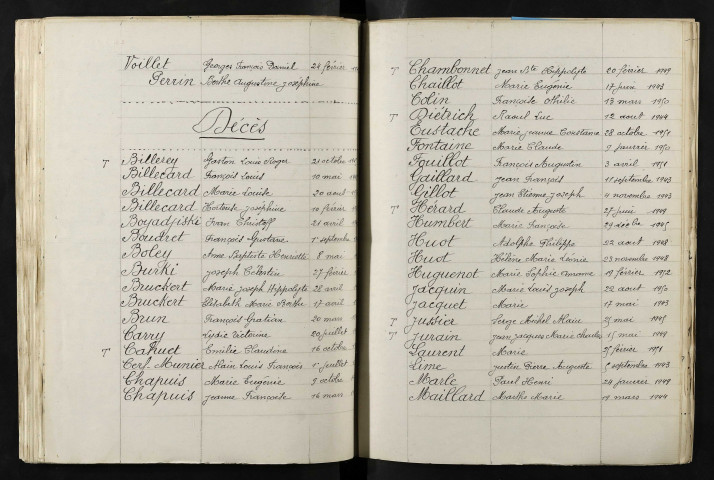 Voillet Georges François Daniel 24 février
Perrin Berthe Augustine Joséphine
Décès
T Billerey Gaston Louis Roger 21 octobre
Billecard François Louis 10 mai
Billecard Marie Louise 20 août
Billecard Hortense Joséphine 14 février
Boyadjiski Ivan Christoff 21 avril
Boudret François Gustave 1er septembre
Boley Anne Baptiste Henriette 8 mai
Burki Joseph Célestin 27 février
Bruckert Marie Joseph Hippolyte 28 avril
Bruckert Elisabeth Marie Berthe 17 avril
Brun François Gratian 20 mars
Carry Lydie Victorine 20 juillet
T Cahuet Emilie Claudine 16 octobre
Cerf-Munier Alain Louis François 1er juillet
Chapuis Marie Eugénie 9 octobre
Chapuis Jeanne Françoise 16 mars
T Chambonnet Jean Bte Hippolyte 20 février 1949
Chaillot Marie Eugénie 17 juin 1943
Colin Françoise Othilie 13 mars 1950
T Diétrich Raoul Luc 12 août 1944
Eustache Marie Jeanne Constance 28 octobre 1951
Fontaine Marie Claude 9 janvier 1950
Fouillot François Augustin 3 avril 1951
Gaillard Jean François 11 septembre 1943
Gillot Jean Etienne Joseph 4 novembre 1943
T Hérard Claude Auguste 27 juin 1949
Humbert Marie Françoise 29 décembre 1945
Huot Adolphe Philippe 22 août 1948
Huot Hélène Marie Léonie 23 novembre 1948
Huguenot Marie Sophie 19 février 1952
Jacquin Marie Louis Joseph 22 août 1950
Jacquet Marie 17 mai 1943
T Jussier Serge Michel Alain 21 mai 1945
T Jurain Jean Jacques Marie Charles 15 mai 1949
Laurent Marie 25 février 1951
Lime Justin Pierre Auguste 5 septembre 1943
Marle Paul Henri 24 janvier 1949
Maillard Marthe Marie 19 mars 1944